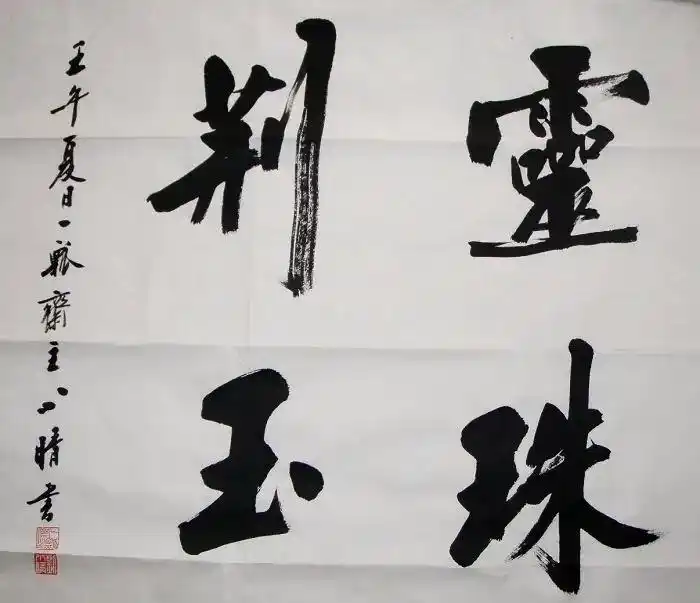 靈珠
荆玉
壬午夏日一瓢齋主小晴書